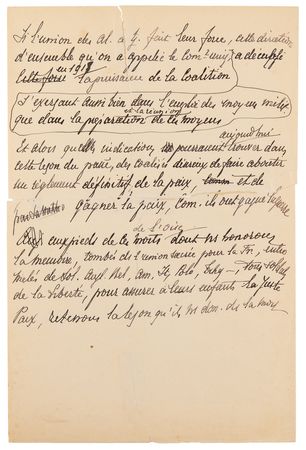 Si l'union des Al. a q. fait leur force, cette direction
d'ensemble qu'on a appelé le Com. uniq. a decuplé
cette force en 1918 la puissance de la Coalition
s'exerçant aussi bien dans l'emploi des moyens milit.
que dans la préparation et la réunion de ces moyens
Et alors quelles indications ne pourraient trouver aujourd'hui dans
cette leçon du passé, des coalisés désireux de faire aboutir
un règlement définitif de la paix, et de
gagner la paix, com. ils ont gagné la guerre
aux pieds de ces morts de l'oise dont ns honorons
la mémoire, tombés de l'union sacrée pour la Fr., entre
mêlés de sol. Angl. Bel. Am. It. Po. - tous soldats
de la liberté, pour assurer à leurs enfants la juste
Paix, retenons la leçon qu'ils ns don. de la